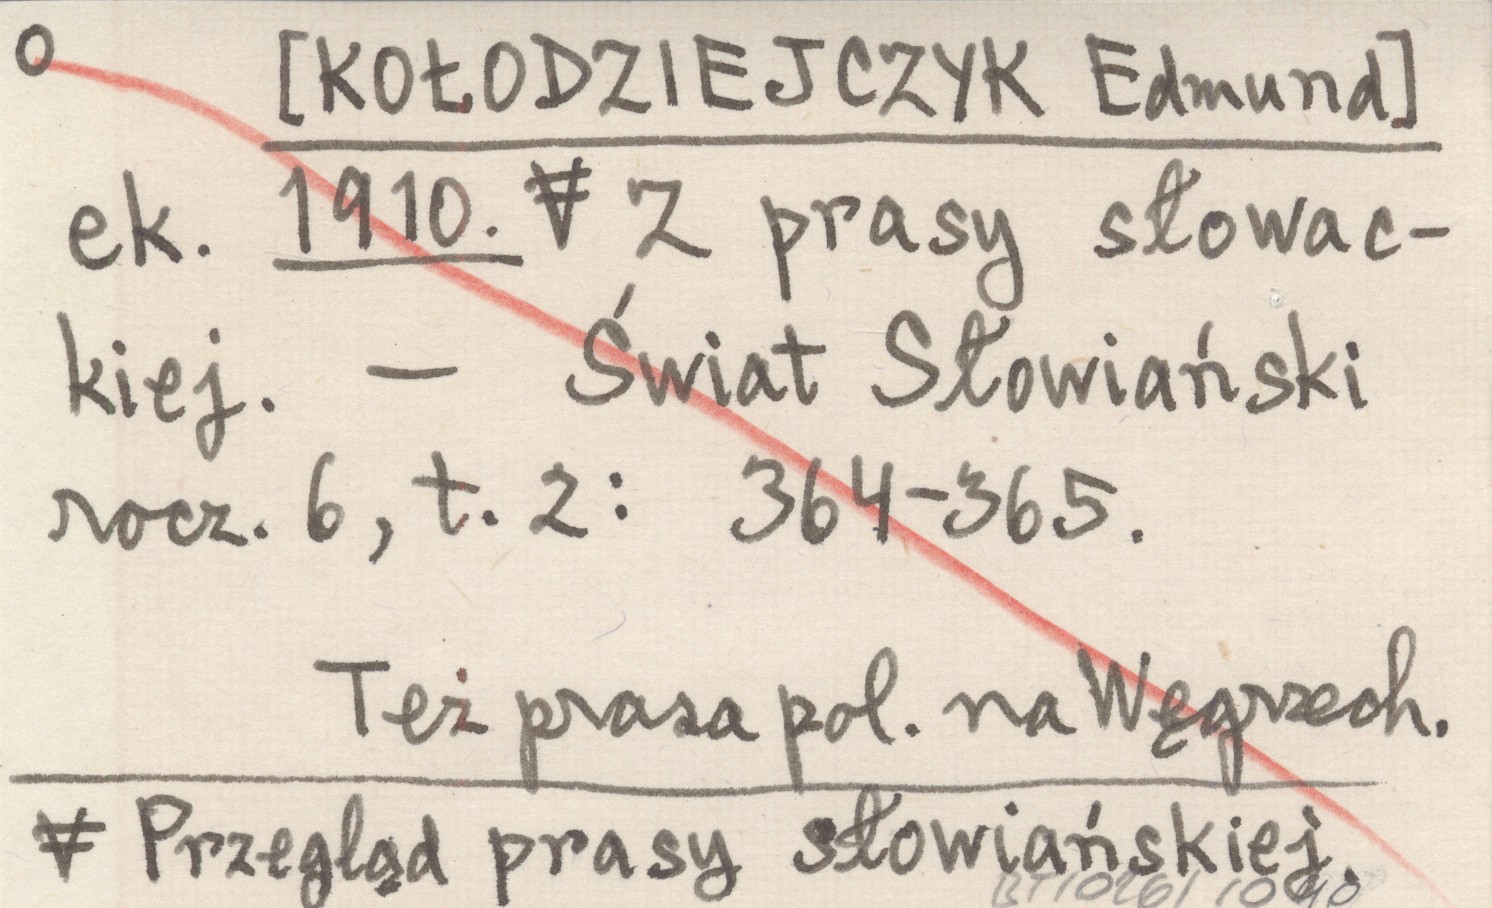 [KOŁODZIEJCZYK Edmund]
ek. 1910. ∀ Z prasy słowac-
kiej. — Świat Słowiański
rocz. 6, t. 2: 364-365.
Też prasa pol. na Węgrzech.
∀ Przegląd prasy słowiańskiej.